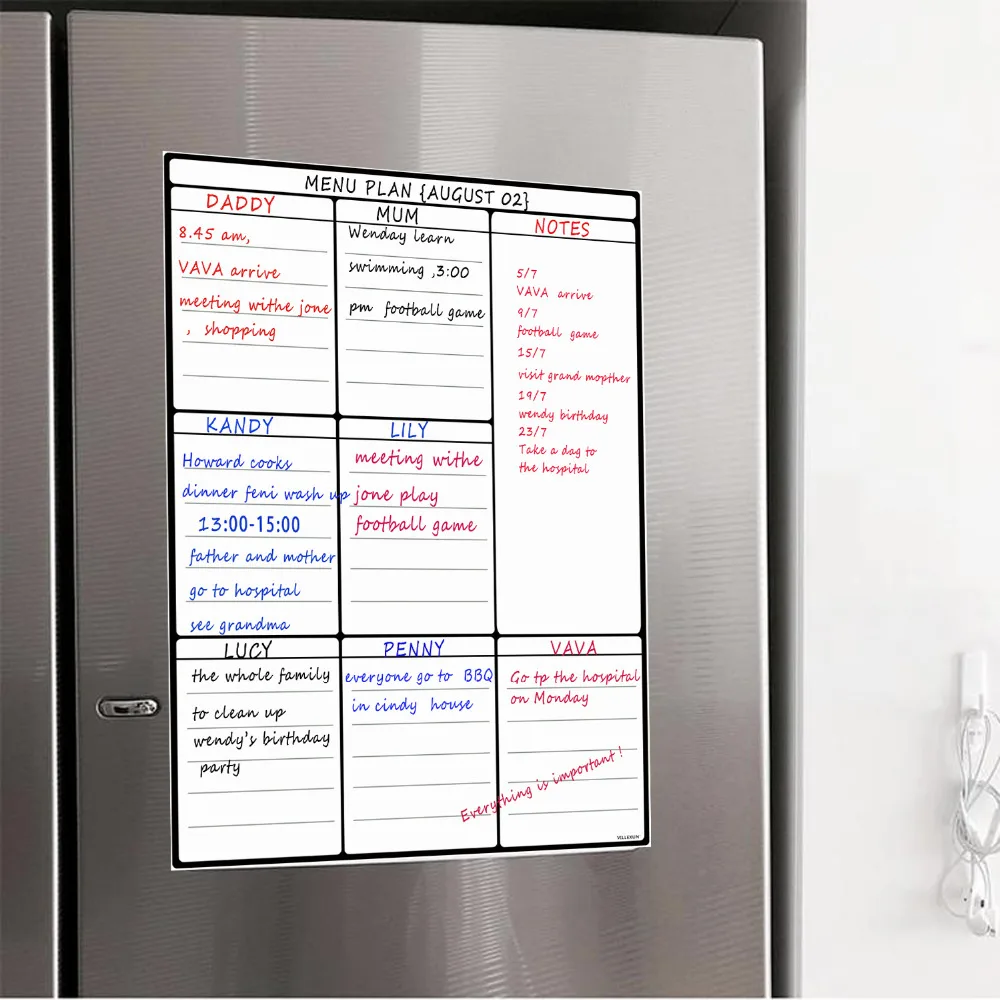 MENU PLAN {AUGUST 02}
DADDY
8.45 am,
VAVA arrive
meeting withe jone
, shopping
MUM
Wenday learn
swimming ,3:00
pm football game
NOTES
5/7
VAVA arrive
9/7
football game
15/7
visit grand mopther
19/7
wendy birthday
23/7
Take a dag to
the hospital
KANDY
Howard cooks
dinner feni wash up
13:00-15:00
father and mother
go to hospital
see grandma
LILY
meeting withe
jone play
football game
LUCY
the whole family
to clean up
wendy's birthday
party
PENNY
everyone go to BBQ
in cindy house
VAVA
Go tp the hospital
on Monday
Everything is important !